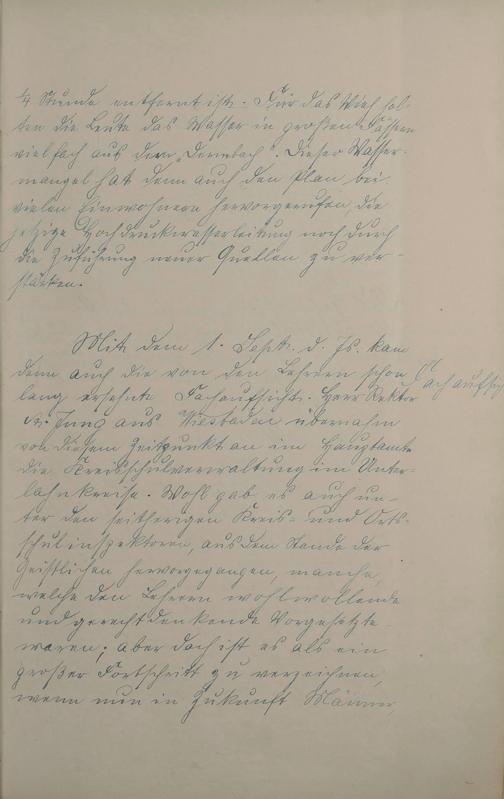 ¼ Stunde entfernt ist. Für das Vieh hol-
ten die Leute das Wasser in großen Fässern
vielfach aus dem „Dernbach". Dieser Wasser-
mangel hat denn auch den Plan bei
vielen Einwohnern hervorgerufen, die
jetzige Hochdruckwasserleitung noch durch
die Zuführung neuer Quellen zu ver-
stärken.
Mit dem 1. Sept. d. Js. kam
denn auch die von den Lehrern schon
Fachaufsicht
lang ersehnte Fachaufsicht. Herr Rektor
Jung aus Wiesbaden übernahm
von diesem Zeitpunkt an im Hauptamte
die Kreisschulverwaltung im Unter-
lahnkreise. Wohl gab es auch un-
ter den seitherigen Kreis- und Orts-
schulinspektoren, aus dem Stande der
Geistlichen hervorgegangen, manche,
welche den Lehrern wohlwollende
und gerecht denkende Vorgesetzte
waren; aber doch ist es als ein
großer Fortschritt zu verzeichnen,
wenn nun in Zukunft Männer,